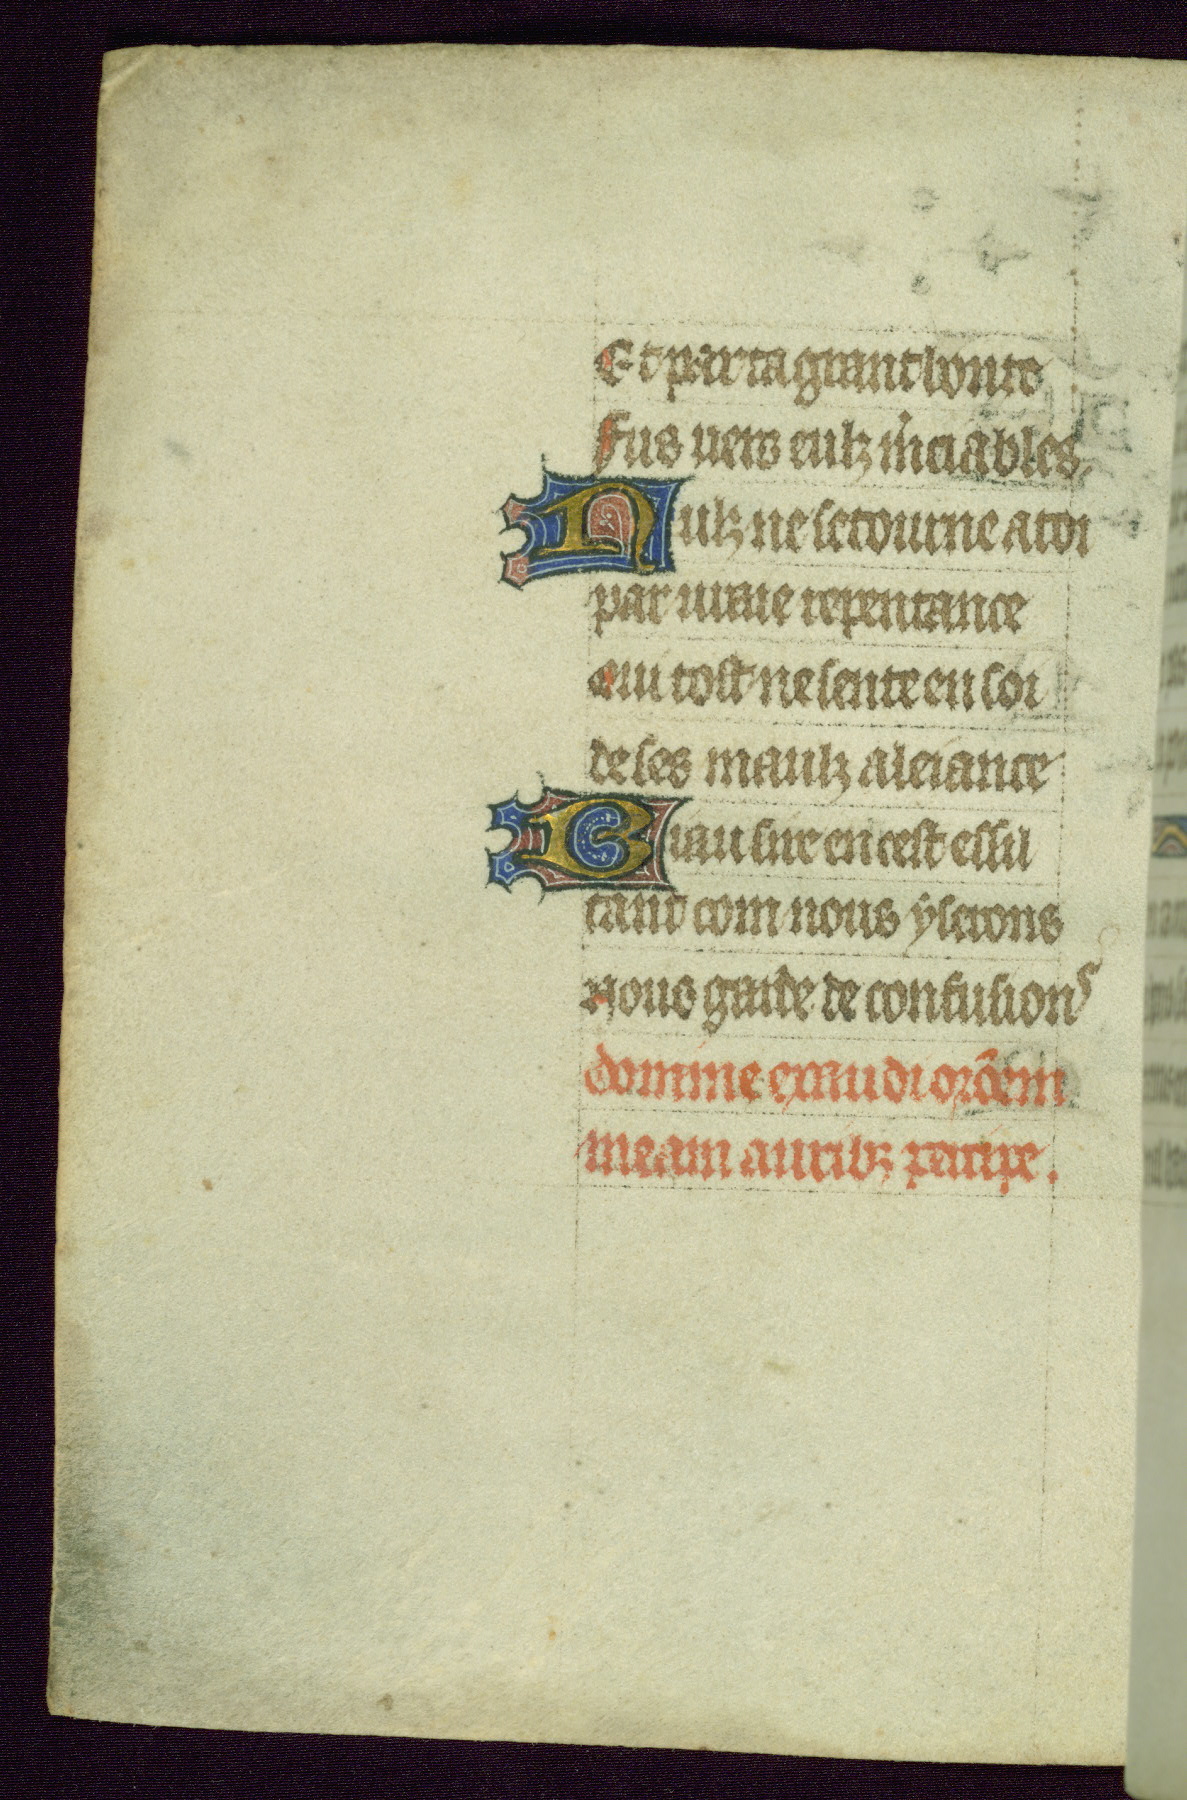 Et par ta grant bonte
Fus vers eulz m̾ciables.
Nulz ne se tourne a toi
par vraie repentance
Qui tost ne sente en soi
de ses maulz aleiance
Biau sire en cest essil
tant com nous y serons
Nous garde de confusion
domine exaudi orõem
meam auribz percipe.